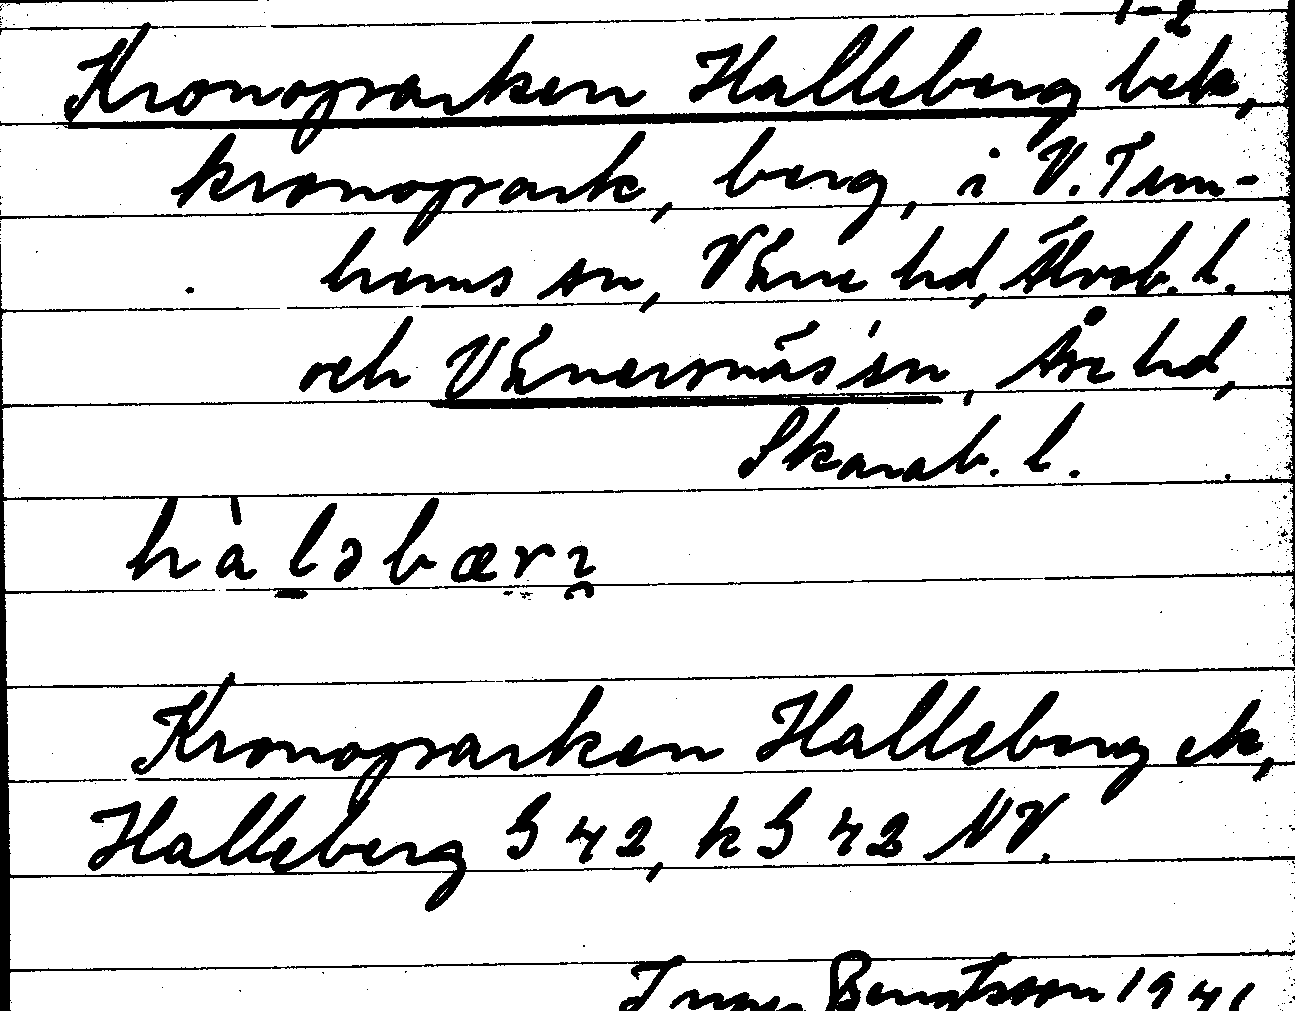 1-2
Kronoparken Halleberg bek,
kronopark, berg, i V. Tun-
hems sn, Väne hd, Älvsb. l.
och Vänersnäs sn, Åse hd,
Skarab. l.
hàləbærj
Kronoparken Halleberg ek,
Halleberg G 42, k G 42 NV.
Bengtsson 1941